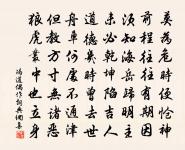 莫為危時便愴神
前程往往有期因
須知海岳歸明主
未必乾坤陷吉人
道德幾時曾去世
舟車何處不通津
但教方寸無諸惡
狼虎叢中也立身
馮道偶作